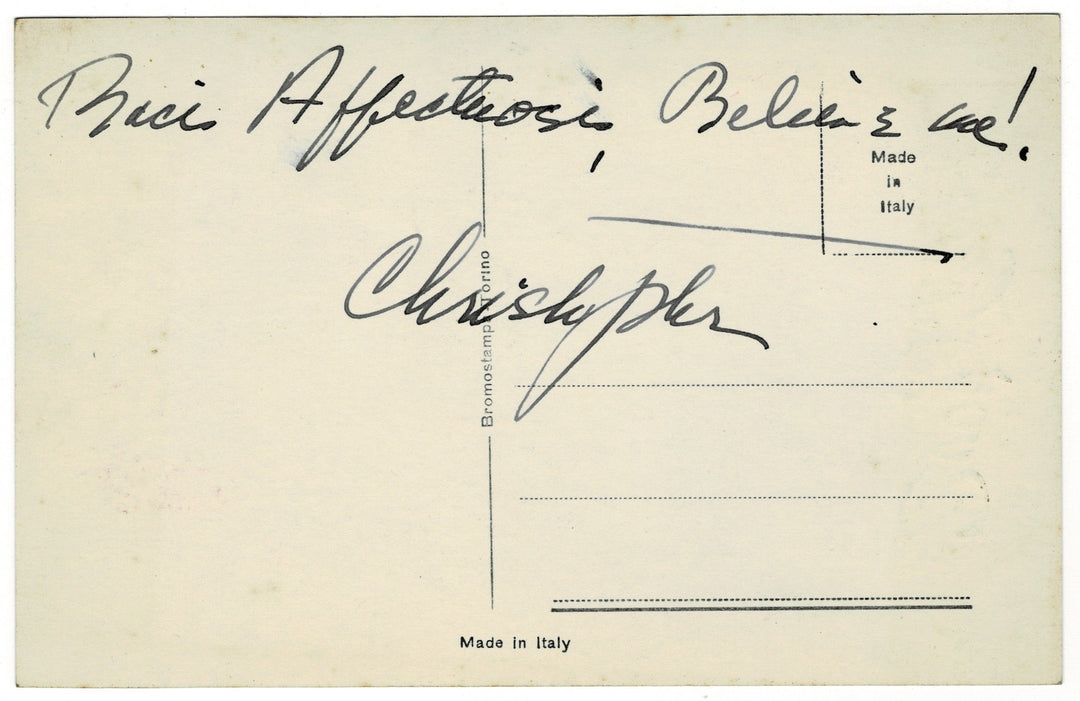 Baci Affectuosi, Believe me!
Made
in
Italy
Christopher
Bromostampa Torino
Made in Italy